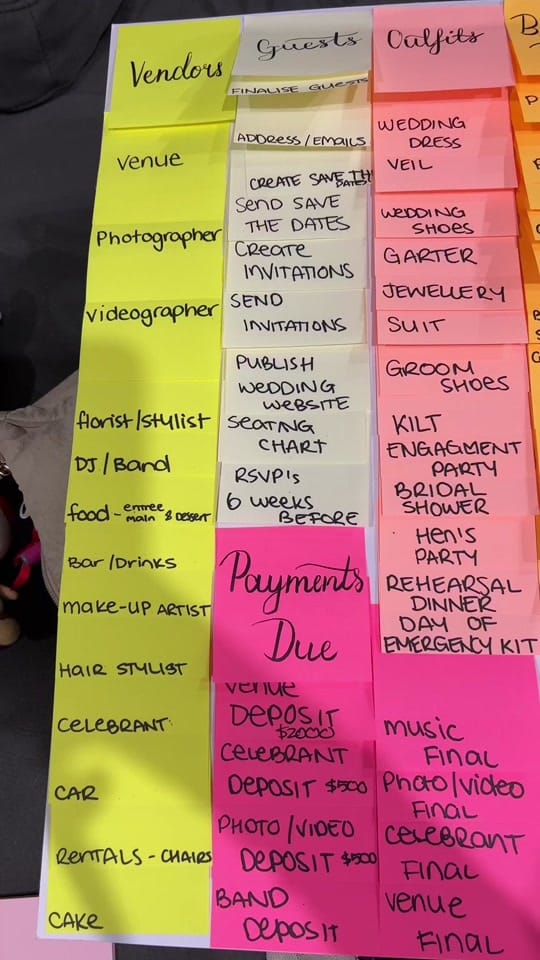 Vendors
Venue
Photographer
Videographer
florist/stylist
DJ/Band
food - entree
main & dessert
Bar/Drinks
make-up ARTIST
HAIR STYLIST
CELEBRANT
CAR
RENTALS - CHAIRS
CAKE
Guests
FINALISE GUESTS
ADDRESS/EMAILS
CREATE SAVE THE
DATES
Send SAVE
THE DATES
Create
INVITATIONS
SEND
INVITATIONS
PUBLISH
WEDDING
WEBSITE
SEATING
CHART
RSVP's
6 weeks
BEFORE
Payments
Due
Venue
DEPOSIT
$2000
CELEBRANT
DEPOSIT $500
PHOTO/VIDEO
DEPOSIT $500
BAND
DEPOSIT
Outfits
WEDDING
DRESS
VEIL
WEDDING
SHOES
GARTER
JEWELLERY
SUIT
GROOM
SHOES
KILT
ENGAGMENT
PARTY
BRIDAL
SHOWER
Hen's
PARTY
REHEARSAL
DINNER
DAY OF
EMERGENCY KIT
music
FINAL
Photo/Video
FINAL
CELEBRANT
FINAL
Venue
FINAL